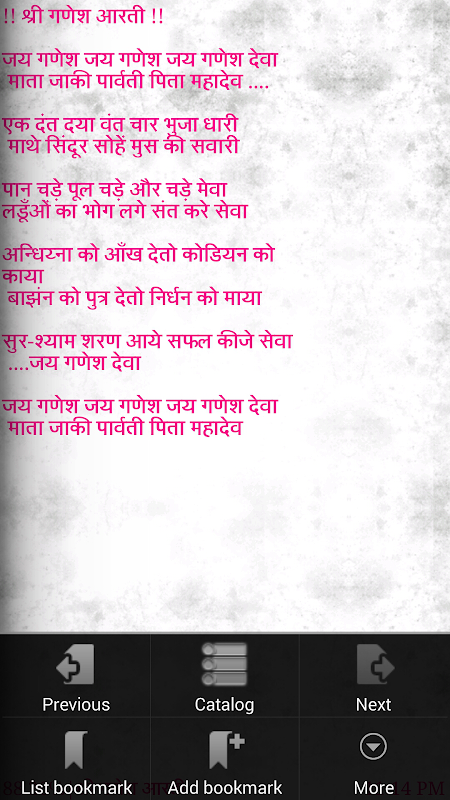 !! श्री गणेश आरती !!
जय गणेश जय गणेश जय गणेश देवा
माता जाकी पार्वती पिता महादेव ....
एक दंत दया वंत चार भुजा धारी
माथे सिंदूर सोहें मुस की सवारी
पान चड़े पूल चड़े और चड़े मेवा
लडूँओं का भोग लगे संत करे सेवा
अन्धिय्ना को आँख देतो कोडियन को
काया
बाझंन को पुत्र देतो निर्धन को माया
सुर-श्याम शरण आये सफल कीजे सेवा
....जय गणेश देवा
जय गणेश जय गणेश जय गणेश देवा
माता जाकी पार्वती पिता महादेव
Previous
Catalog
Next
List bookmark
Add bookmark
More